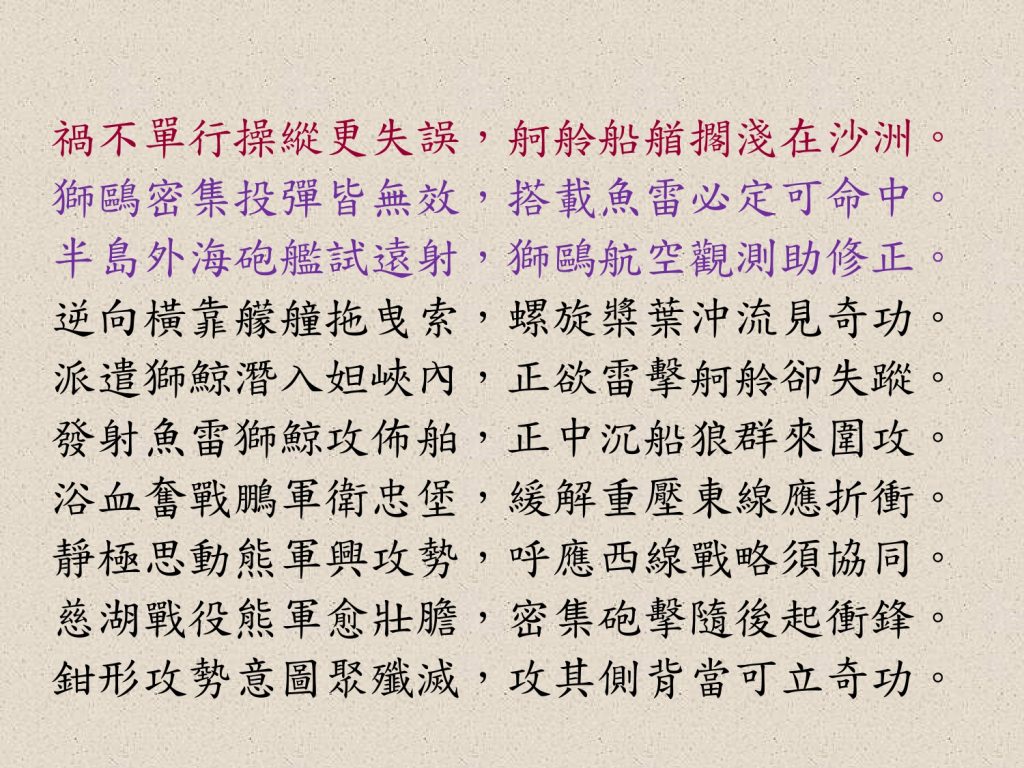 禍不單行操縱更失誤，舸舲船艏擱淺在沙洲。
獅鷗密集投彈皆無效，搭載魚雷必定可命中。
半島外海砲艦試遠射，獅鷗航空觀測助修正。
逆向橫靠艨艟拖曳索，螺旋槳葉沖流見奇功。
派遣獅鯨潛入妲峽內，正欲雷擊舸舲卻失蹤。
發射魚雷獅鯨攻佈舶，正中沉船狼群來圍攻。
浴血奮戰鵬軍衛忠堡，緩解重壓東線應折衝。
靜極思動熊軍興攻勢，呼應西線戰略須協同。
慈湖戰役熊軍愈壯膽，密集砲擊隨後起衝鋒。
鉗形攻勢意圖聚殲滅，攻其側背當可立奇功。